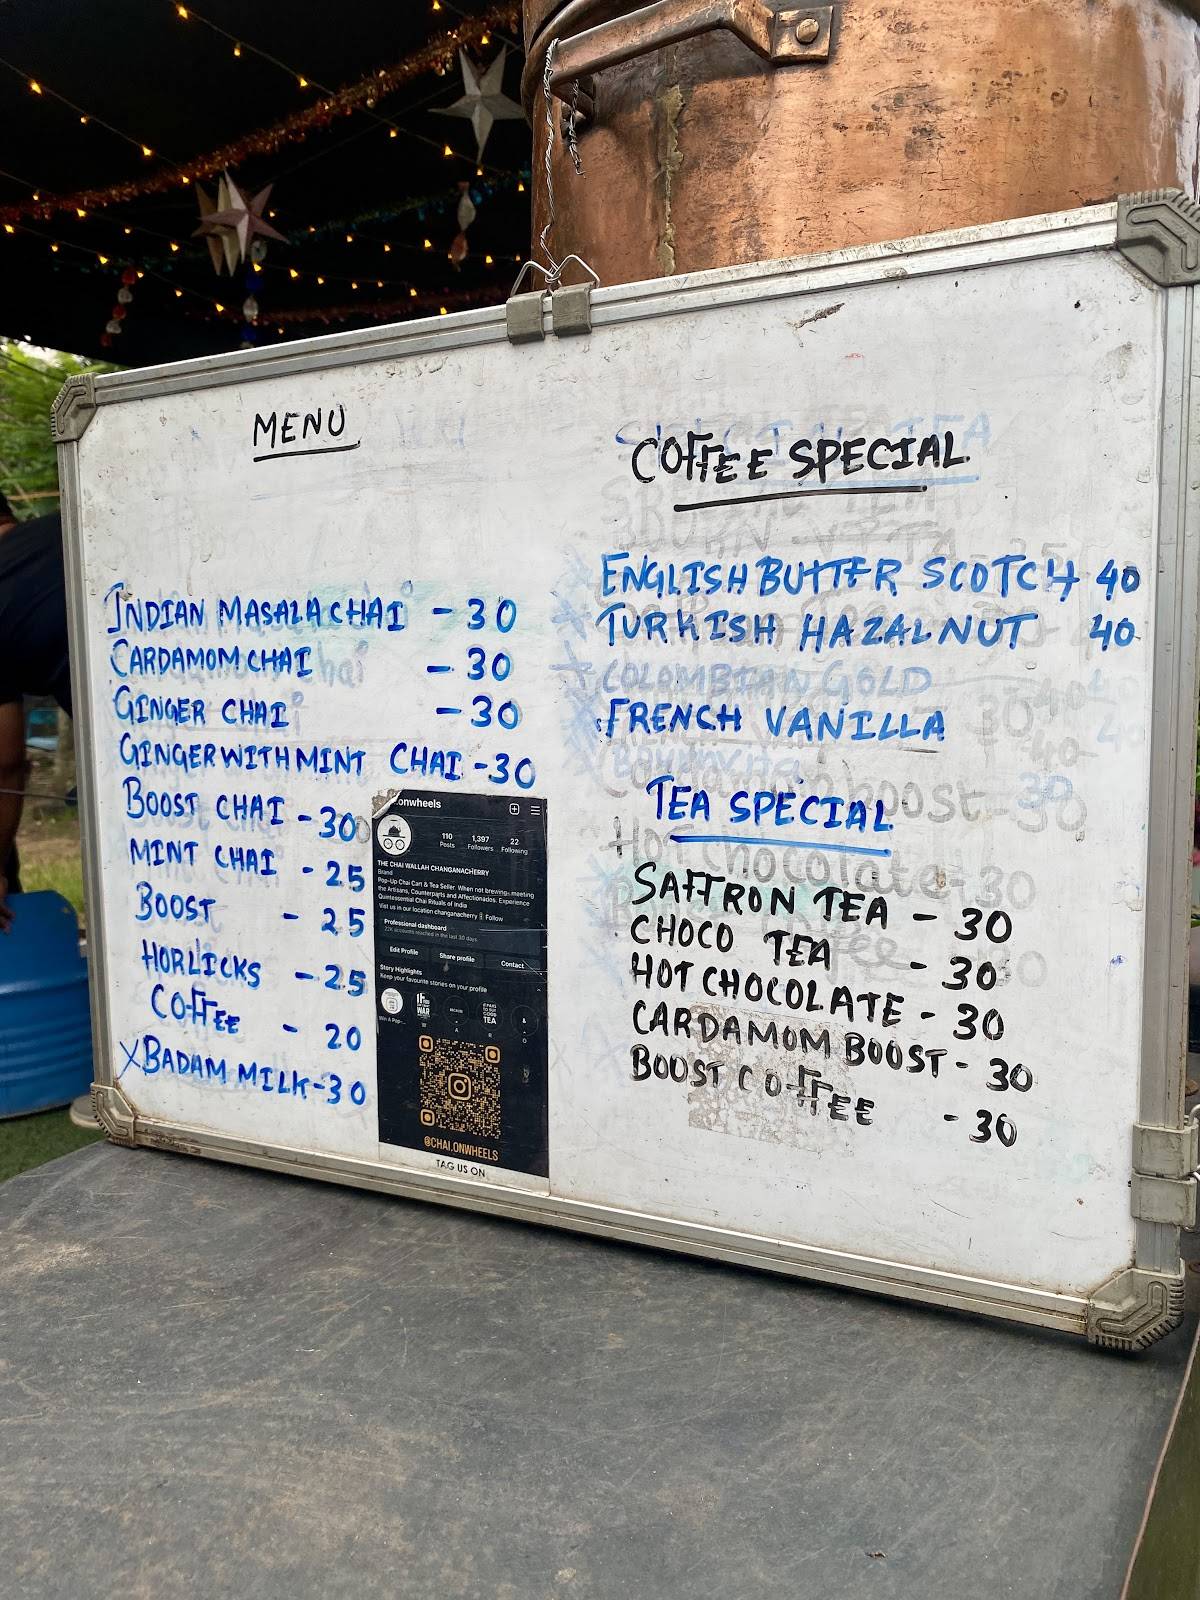 MENU
INDIAN MASALA CHAI - 30
CARDAMOM CHAI - 30
GINGER CHAI - 30
GINGER WITH MINT CHAI - 30
BOOST CHAI - 30
MINT CHAI - 25
BOOST - 25
HORLICKS - 25
COFFEE - 20
X BADAM MILK - 30
.onwheels
110 1,397 22
Posts Followers Following
THE CHAI WALLAH CHANGANACHERRY
Brand
Pop-Up Chai Cart & Tea Seller. When not brewing, meeting
the Artisans, Counterparts and Affectionados. Experience
Quintessential Chai Rituals of India
Vist us in our location changanacherry Follow
Professional dashboard
22K accounts reached in the last 30 days.
Edit Profile Share profile Contact
Story Highlights
Keep your favourite stories on your profile
@CHAI.ONWHEELS
TAG US ON
COFFEE SPECIAL
ENGLISH BUTTER SCOTCH 40
TURKISH HAZALNUT 40
COLOMBIAN GOLD
FRENCH VANILLA
TEA SPECIAL
SAFFRON TEA - 30
CHOCO TEA - 30
HOT CHOCOLATE - 30
CARDAMOM BOOST - 30
BOOST COFFEE - 30